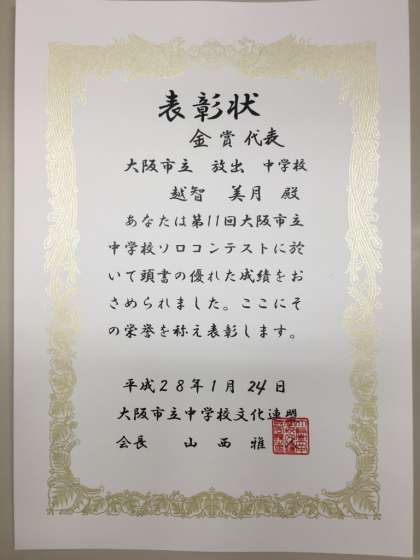 表彰状
金賞代表
大阪市立 放出 中学校
越智 美月 殿
あなたは第11回大阪市立
中学校ソロコンテストに於
いて頭書の優れた成績をお
さめられました。ここにそ
の栄誉を称え表彰します。
平成28年1月24日
大阪市立中学校文化連盟
会長 山西雅